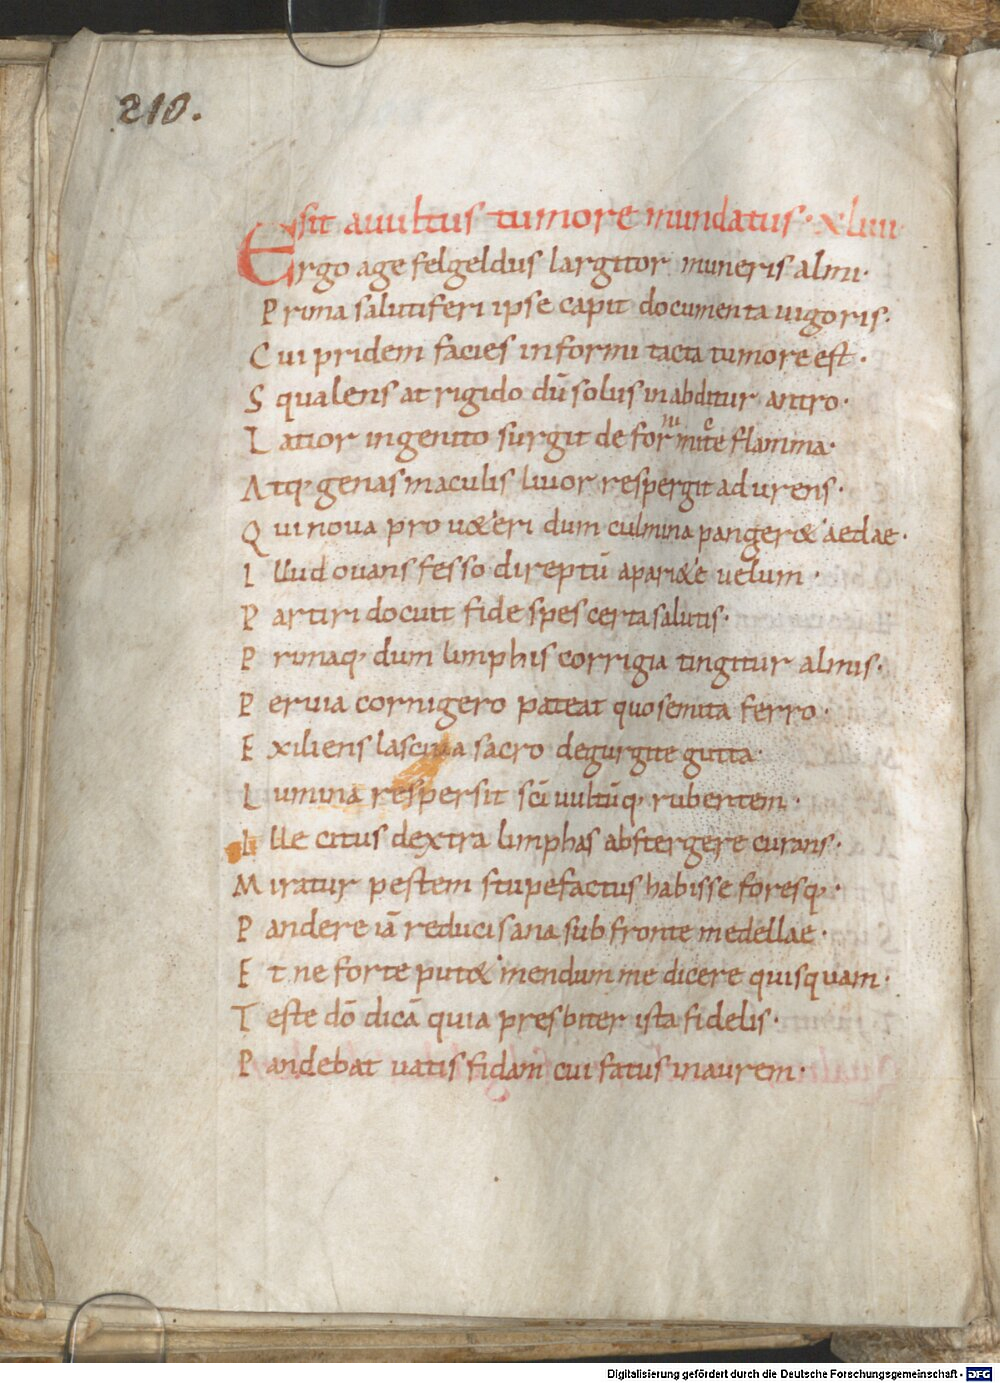 210.
sit a uultus tumore mundatus· xluii
Ergo age felgeldus largitor muneris almi·
Prima salutiferi ipse capit documenta uigoris·
Cui pridem facies informi tacta tumore est·
Squalens at rigido dū solus inabditur antro·
Latior ingenito surgit de formite flamma·
Atq· genas maculis liuor respergit adurens·
Qui noua prouexerit dum culmina pangeret aedae·
Illud ouans fesso direptū apariete uelum·
Partiri docuit fide spes certa salutis·
Primaq· dum limphis corrigia tingitur almis·
Peruia cornigero pateat quo semita ferro·
Exiliens lasciua sacro degurgite gutta·
Lumina respersit scī uultūq· rubentem·
Ille citus dextra limphas abstergere curans·
Miratur pestem stupefactus habisse foresq·
Pandere iā reduci sana sub fronte medellae·
Et ne forte putet mendum me dicere quisquam·
Teste dō dicā quia presbiter ista fidelis·
Pandebat uatis fidam cui fatus inaurem·
Digitalisierung gefördert durch die Deutsche Forschungsgemeinschaft - DFG